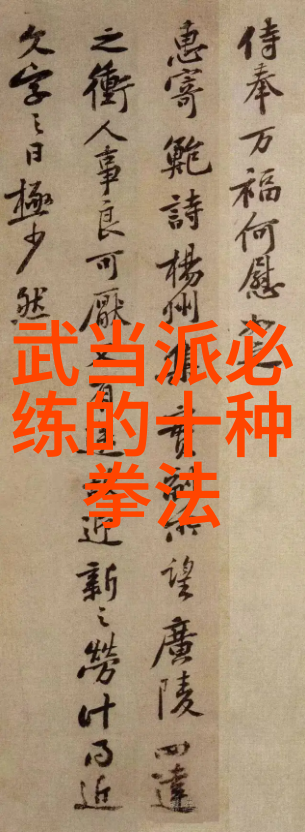 侍奉万福何慰
惠寄鲍詩楊州集 望廣陵四達
之衝人事良可厭 近新之勞什 近
久字之日極少然
武当派必
练的十种
拳法